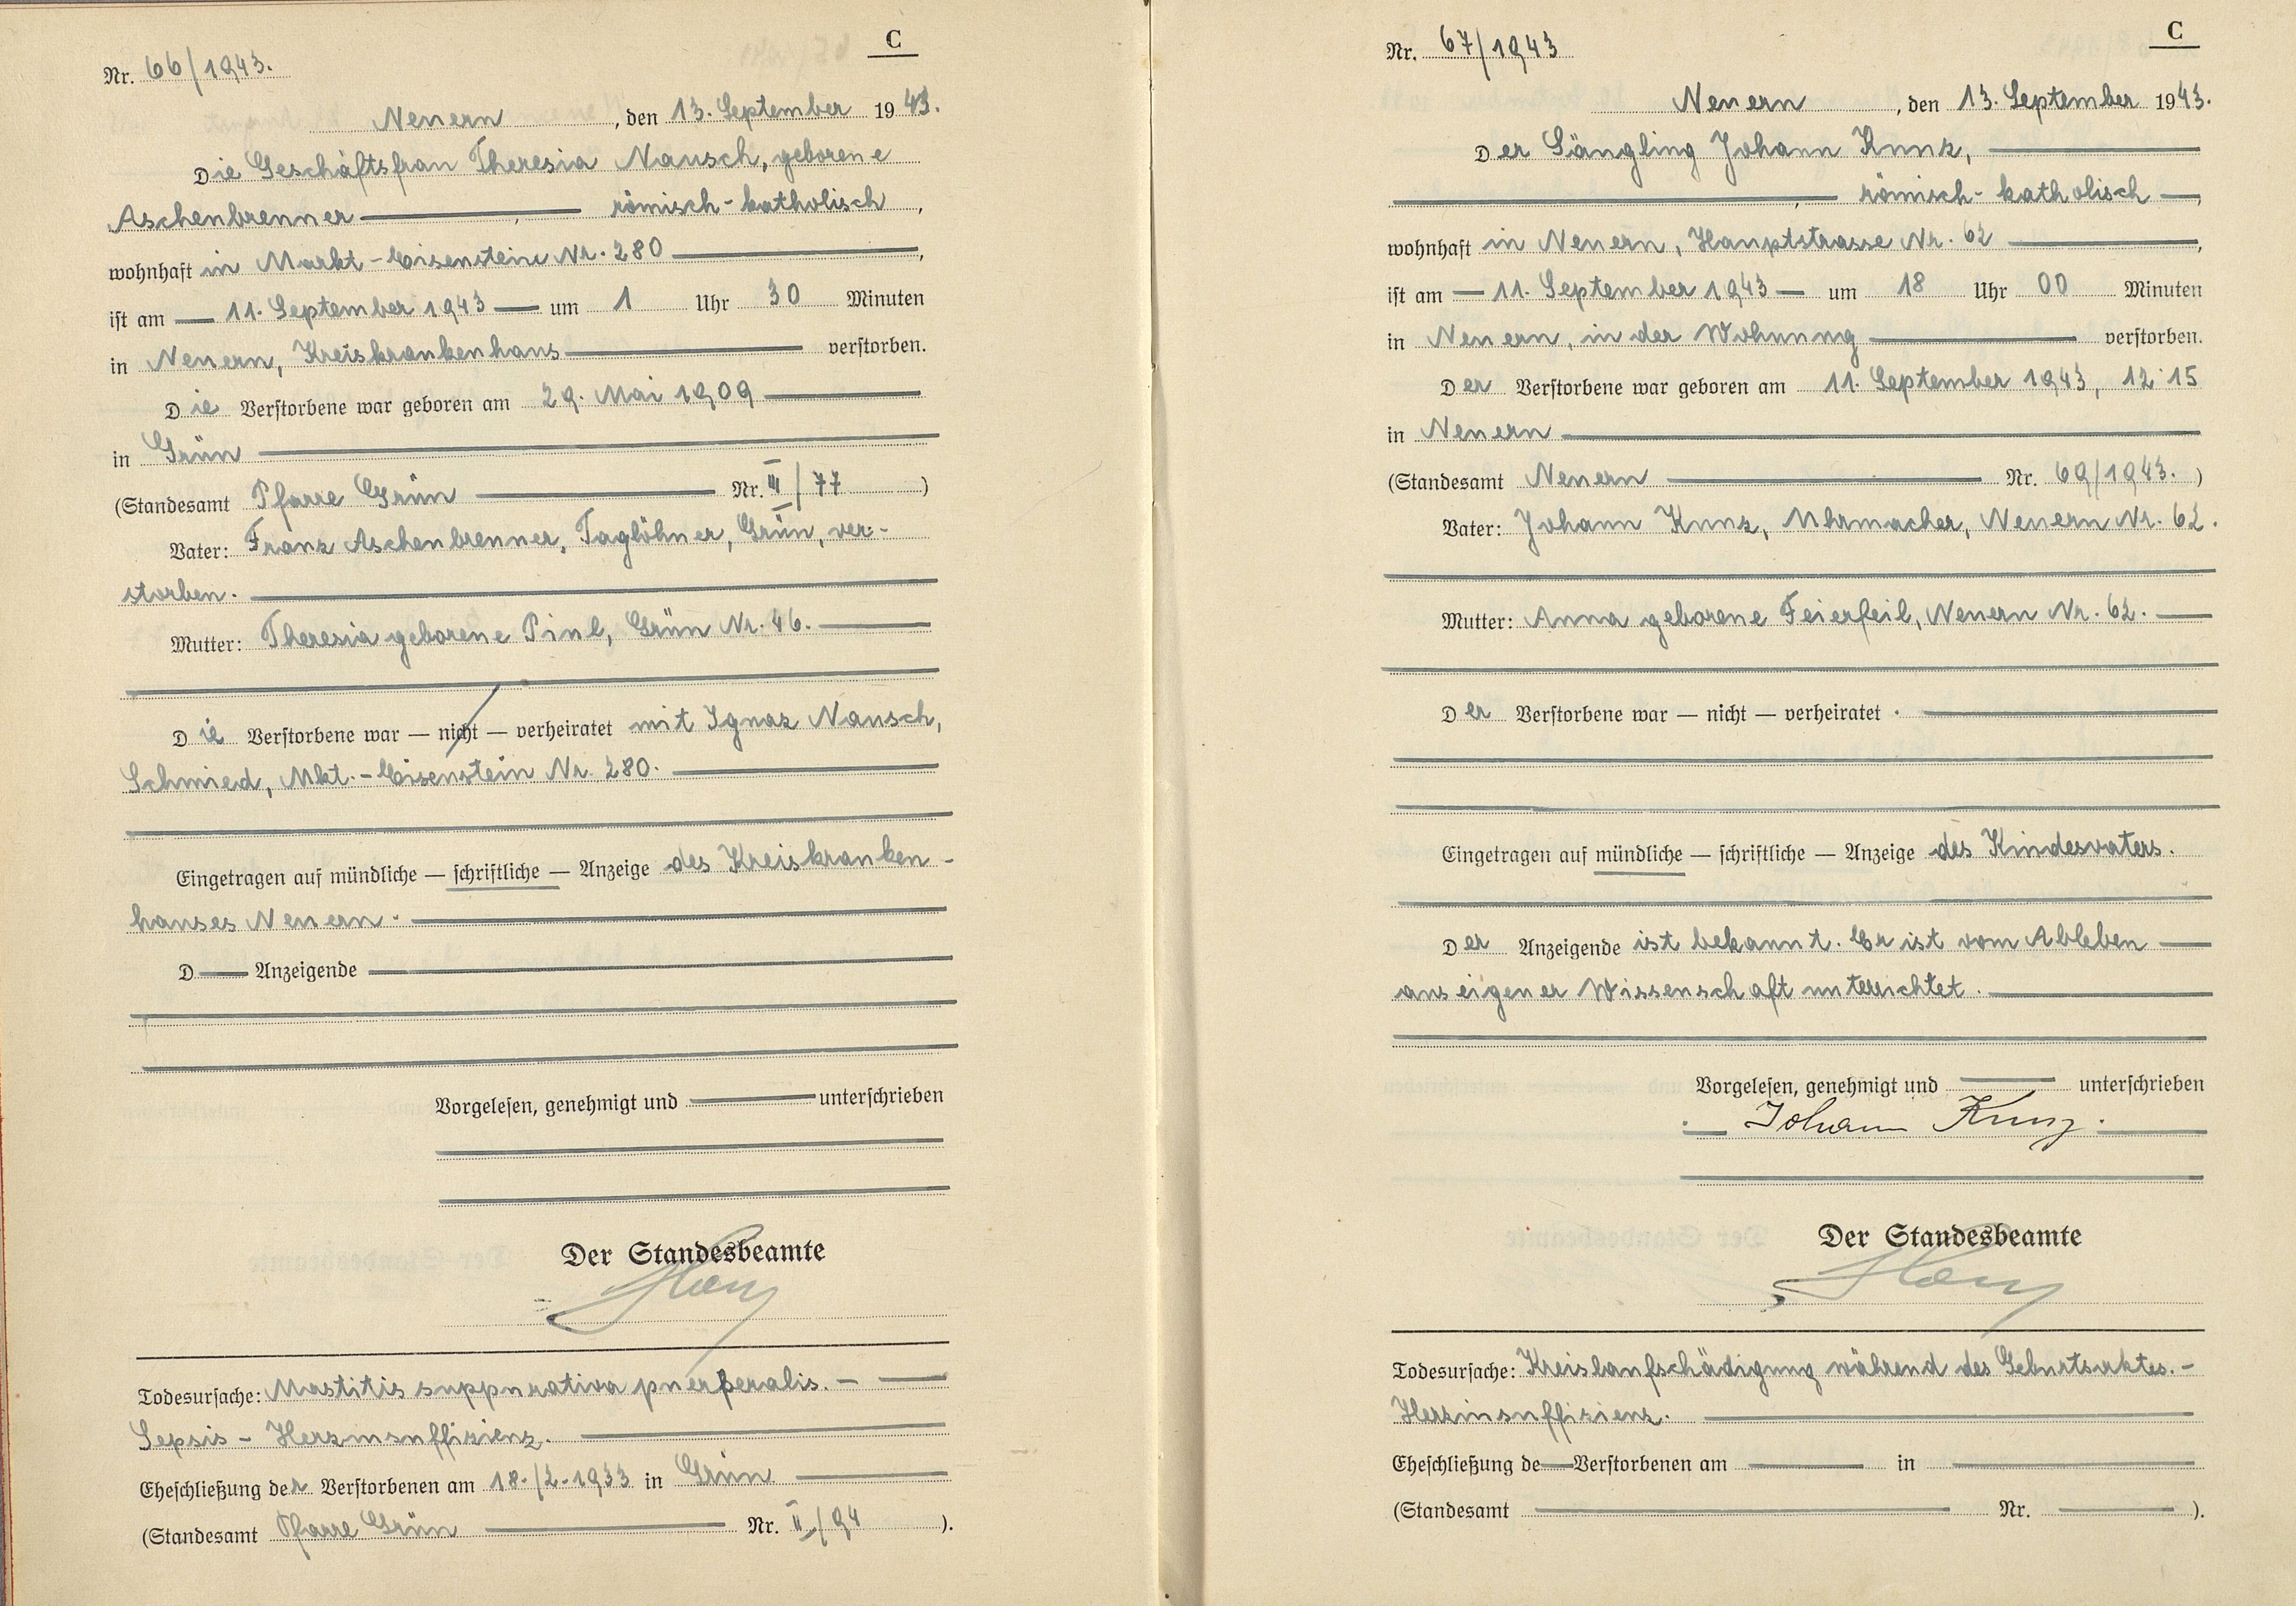 C
Nr. 66/1943.
Neuern, den 13. September 1943.
Die Geschäftsfrau Theresia Nausch, geborene
Aschenbrenner —, — römisch-katholisch,
wohnhaft in Markt-Eisenstein Nr. 280 —,
ist am — 11. September 1943 — um 1 Uhr 30 Minuten
in Neuern, Kreiskrankenhaus — verstorben.
Die Verstorbene war geboren am 29. Mai 1909 —
in Grün —
(Standesamt Pfarre Grün — Nr. III/77)
Vater: Franz Aschenbrenner, Taglöhner, Grün, ver-
storben. —
Mutter: Theresia geborene Pinl, Grün Nr. 46. —
Die Verstorbene war — nicht — verheiratet mit Ignaz Nausch,
Schmied, Mkt.-Eisenstein Nr. 280. —
Eingetragen auf mündliche — schriftliche — Anzeige des Kreiskranken-
hauses Neuern. —
D — Anzeigende —
Vorgelesen, genehmigt und — unterschrieben
Der Standesbeamte
Todesursache: Mastitis suppurativa puerperalis. — —
Sepsis - Herzinsuffizienz. —
Eheschließung der Verstorbenen am 18./2.1933 in Grün —
(Standesamt Pfarre Grün — Nr. II/94).
C
Nr. 67/1943
Neuern, den 13. September 1943.
Der Säugling Johann Kunz, —
—, — römisch-katholisch —,
wohnhaft in Neuern, Hauptstrasse Nr. 62 —,
ist am — 11. September 1943 — um 18 Uhr 00 Minuten
in Neuern, in der Wohnung — verstorben.
Der Verstorbene war geboren am 11. September 1943, 12.15
in Neuern —
(Standesamt Neuern — Nr. 69/1943.)
Vater: Johann Kunz, Uhrmacher, Neuern Nr. 62.
Mutter: Anna geborene Feierfeil, Neuern Nr. 62. —
Der Verstorbene war — nicht — verheiratet. —
Eingetragen auf mündliche — schriftliche — Anzeige des Kindesvaters.
Der Anzeigende ist bekannt. Er ist vom Ableben —
aus eigener Wissenschaft unterrichtet. —
Vorgelesen, genehmigt und — unterschrieben
— Johann Kunz. —
Der Standesbeamte
Todesursache: Kreislaufschädigung während des Geburtsaktes. -
Herzinsuffizienz. —
Eheschließung de — Verstorbenen am — in —
(Standesamt — Nr. —).